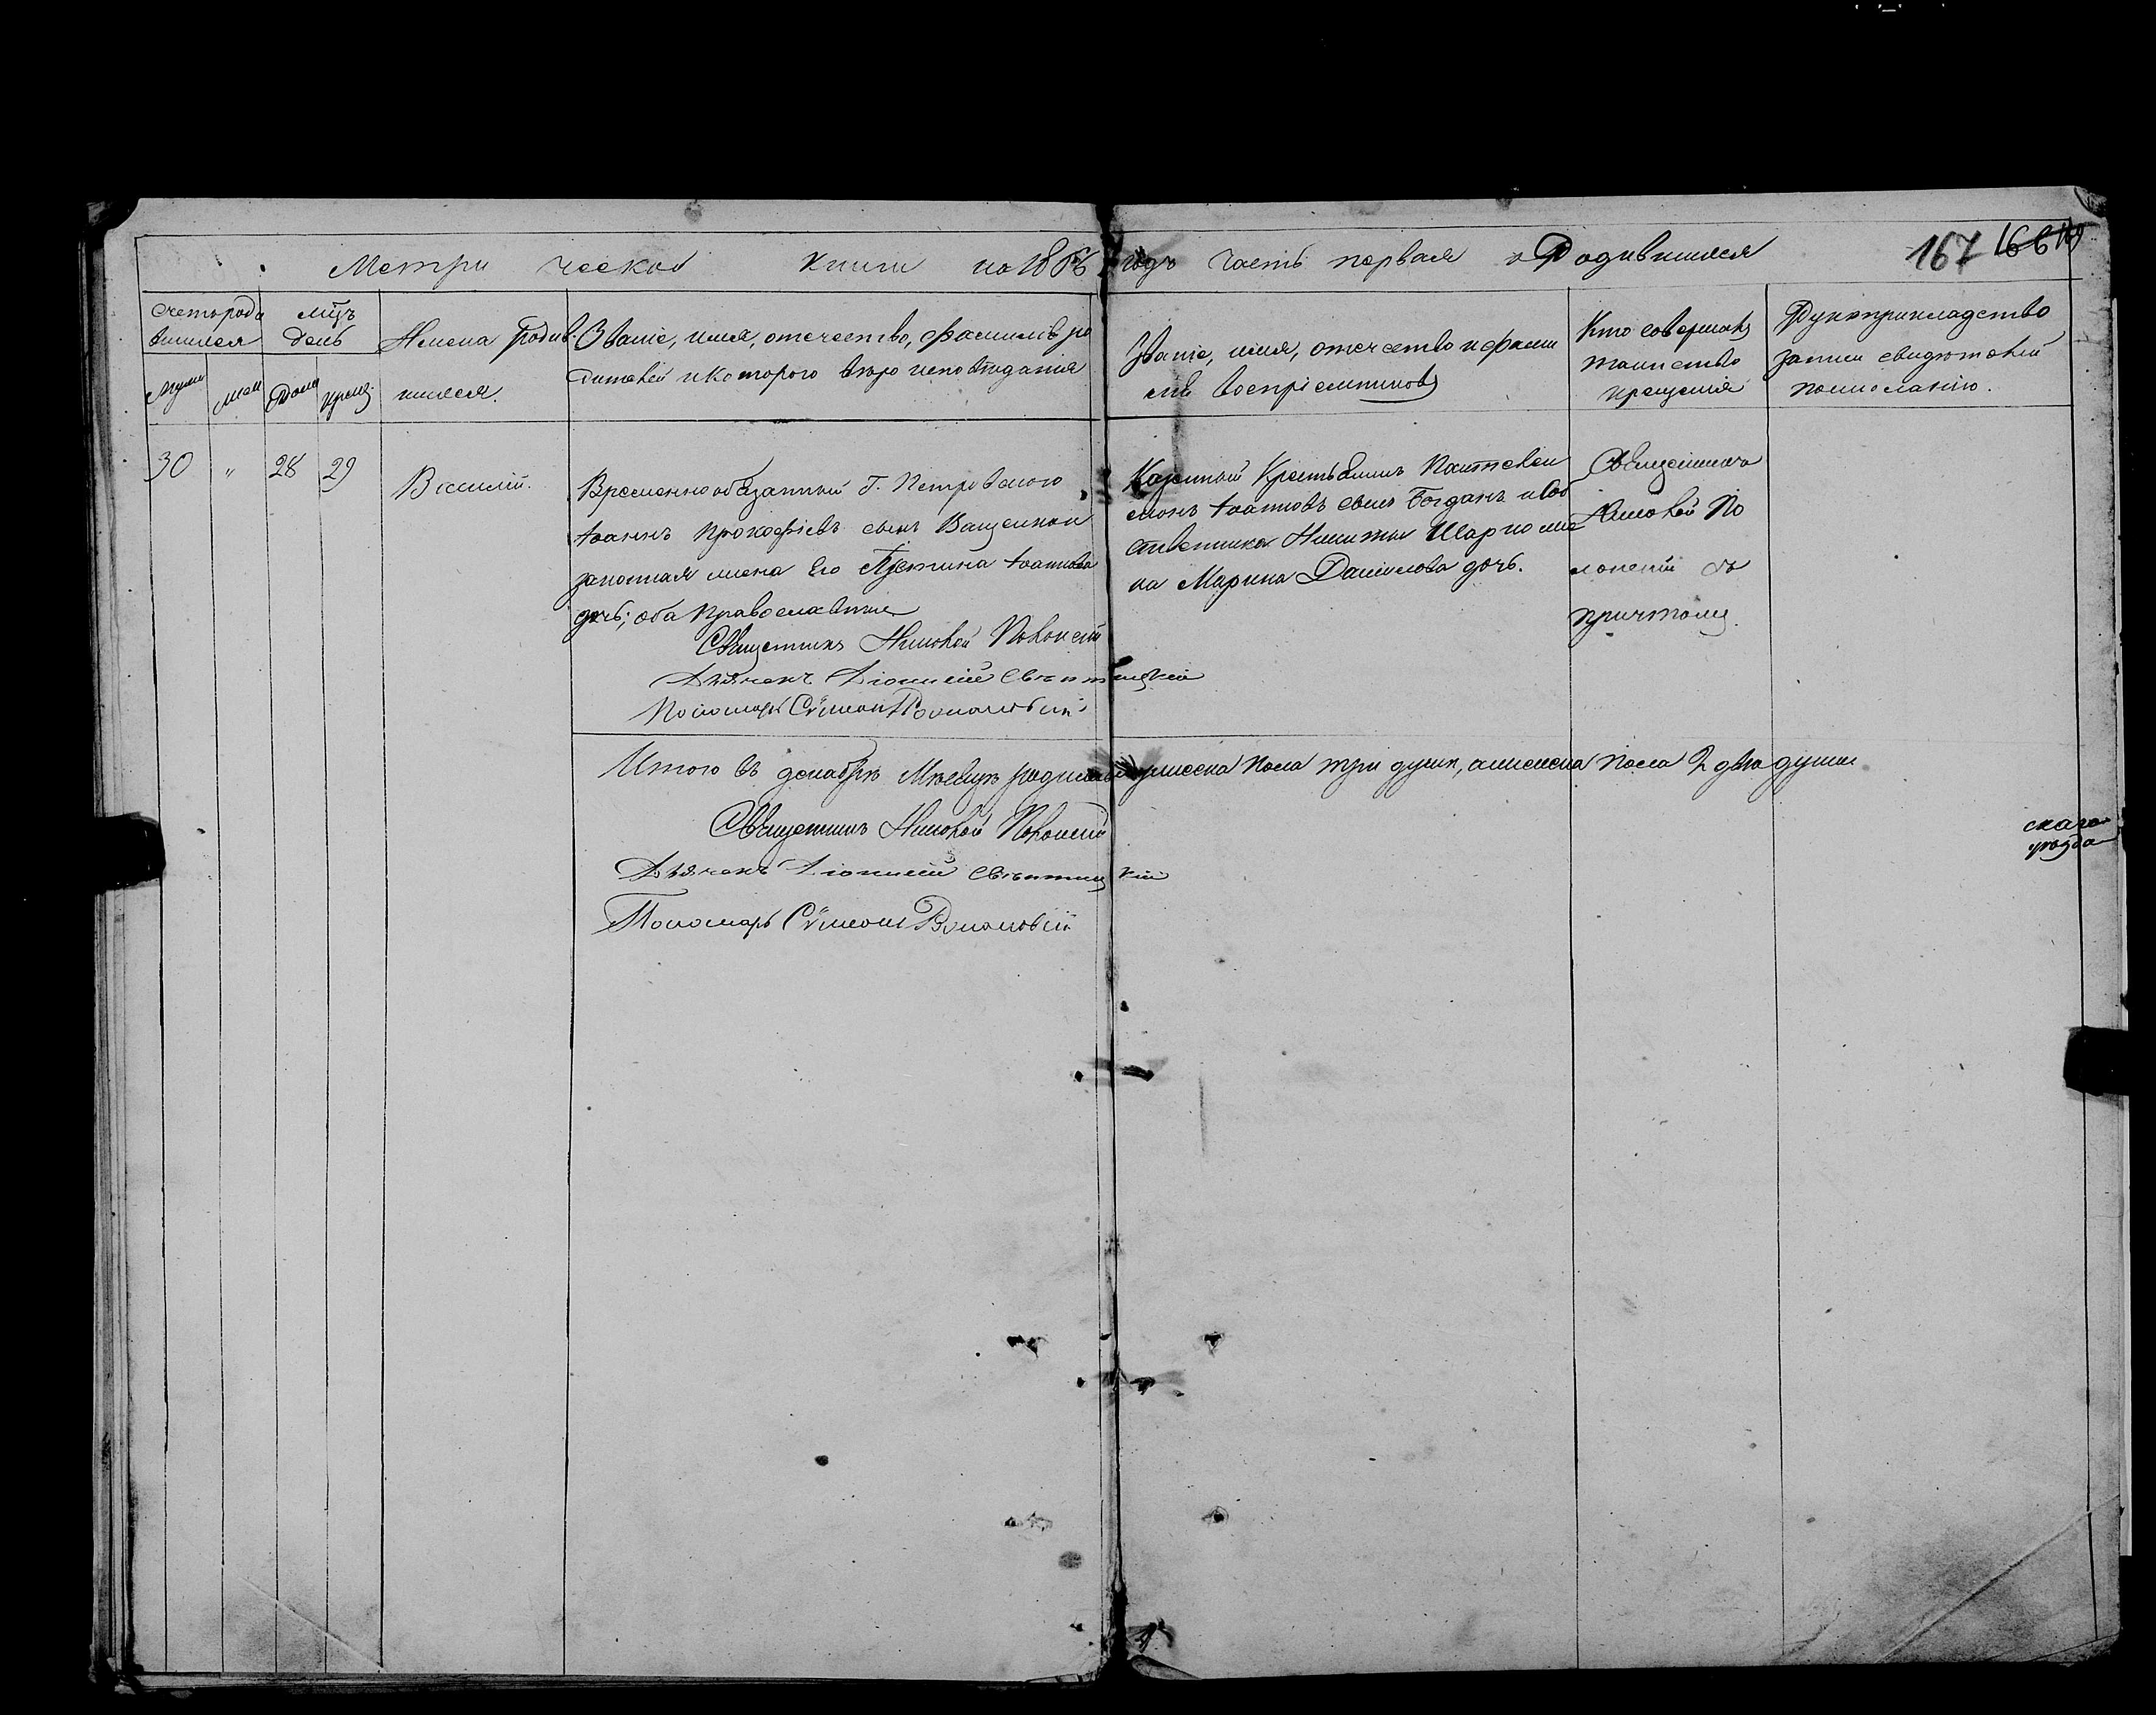 Метрической книги на 1866 годъ часть первая о Родившихся
167 166
Счетъ роди
вшихся
Муж
жен
мцъ
День
Рож
крещ.
Имена родив
шихся.
Званіе, имя, отечество, фамилія ро
дителей и которого вѣроисповѣданія
Званіе, имя, отечество и фами
лія воспріемниковъ
Кто совершалъ
таинство
крещенія
Рукоприкладство
записи свидѣтелей
по желанію.
30 " 28 29
Василій.
Временнообязанный Г. Петровского
Іоаннъ Прокофіевъ сынъ Ващенко и
законная жена его Іоаннова
дочь; оба Православные
Священникъ Николай
Дьячекъ Діонисій Свѣнтицкій
Пономарь Сѵмеонъ Романовскій
Казенный Крестьянинъ Пантелеи
монъ Іоанновъ сынъ Богданъ и Соб
ственника Никиты
на Марина Данилова дочь.
Священникъ
Николай По
лонскій съ
причтомъ.
Итого въ декабрѣ Мѣсяцѣ родилось мужеска пола три души, а женска пола 2 двѣ души
Священникъ Николай
Дьячекъ Діонисій Свѣнтицкій
Пономарь Сѵмеонъ Романовскій
скаго
уѣзда